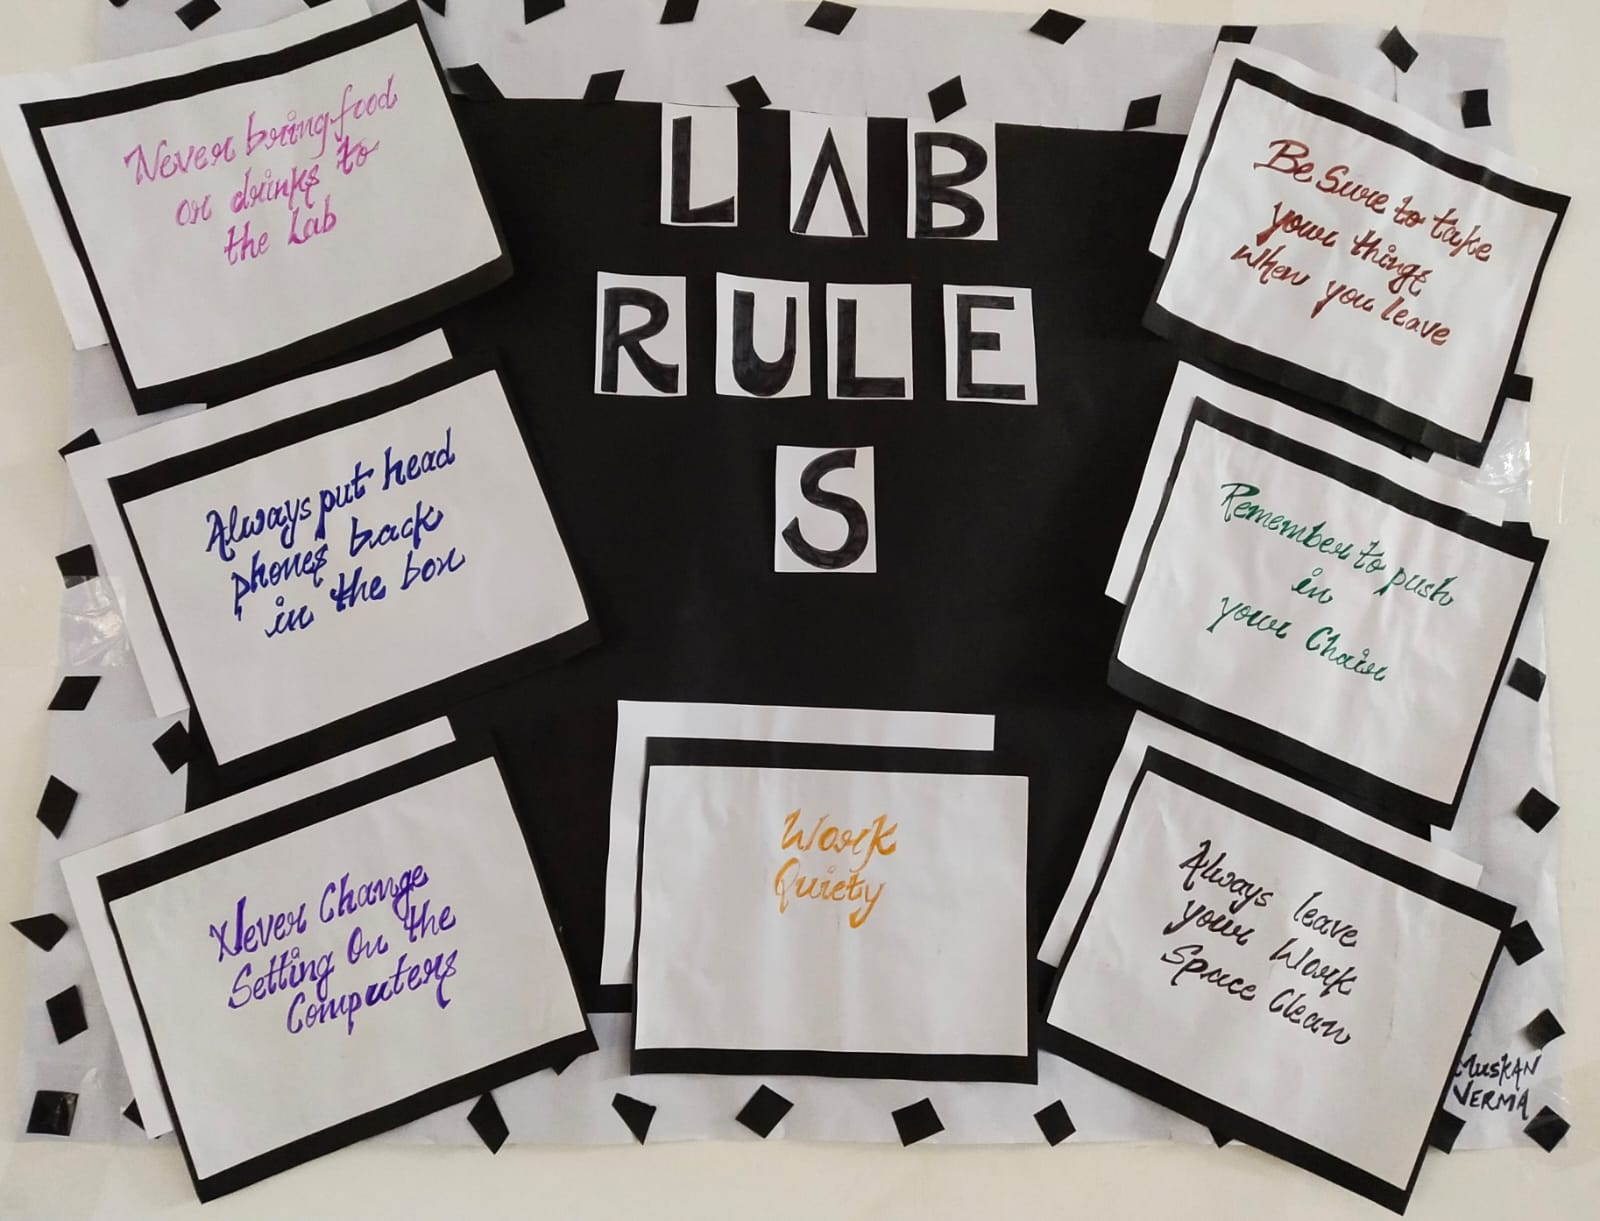 LAB
RULE
S
Never bring food
or drinks to
the Lab
Always put head
phones back
in the box
Never Change
Setting On the
Computers
Work
Quiety
Be Sure to take
your things
when you leave
Remember to push
in
your Chair
Always leave
your Work
Space Clean
MUSKAN
VERMA